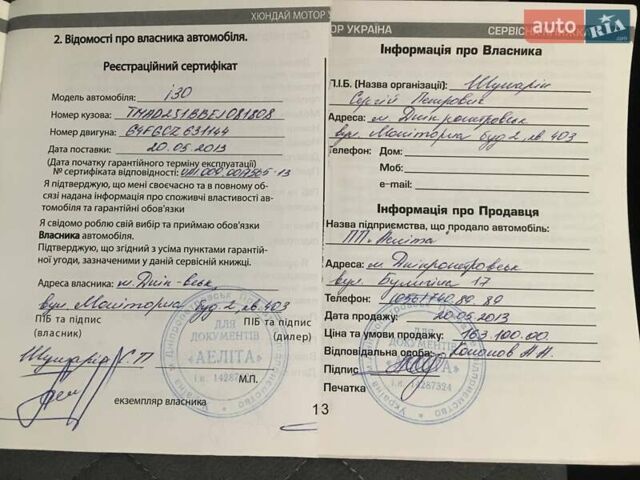 ХЮНДАЙ МОТОР У
2. Відомості про власника автомобіля.
Реєстраційний сертифікат
Модель автомобіля: i30
Номер кузова: TMAD251BBEJ081808
Номер двигуна: G4FGCZ631144
Дата поставки: 20.05.2013
(Дата початку гарантійного терміну експлуатації)
№ сертифіката відповідності:
Я підтверджую, що мені своєчасно та в повному об-
сязі надана інформація про споживчі властивості ав-
томобіля та гарантійні обов'язки
Я свідомо роблю свій вибір та приймаю обов'язки
Власника автомобіля.
Підтверджую, що згідний з усіма пунктами гарантій-
ної угоди, зазначеними у даній сервісній книжці.
Адреса власника: м. Дніп-вськ,
вул. Моніторна буд 2, кв. 403
ПІБ та підпис ПІБ та підпис
(власник) (дилер)
Шумарін С.П
М.П.
екземпляр власника
ДЛЯ
ДОКУМЕНТІВ
"АЕЛІТА"
13
ОР УКРАЇНА СЕРВІСН
auto RIA
.com
Інформація про Власника
П.І.Б. (Назва організації): Шумарін
Сергій Петрович
Адреса: м Дніпропетровськ
вул. Моніторна буд 2, кв. 403
Телефон: Дом:
Моб:
e-mail:
Інформація про Продавця
Назва підприємства, що продало автомобіль:
ПП "Аеліта
Адреса: м Дніпропетровськ
вул. Булигіна 17
Телефон:
Дата продажу: 20.05.2013
Ціна та умови продажу: 163 100.00
Відповідальна особа: Кононов А.А.
Підпис
Печатка
ДЛЯ
ДОКУМЕНТІВ
і.к. 14287324